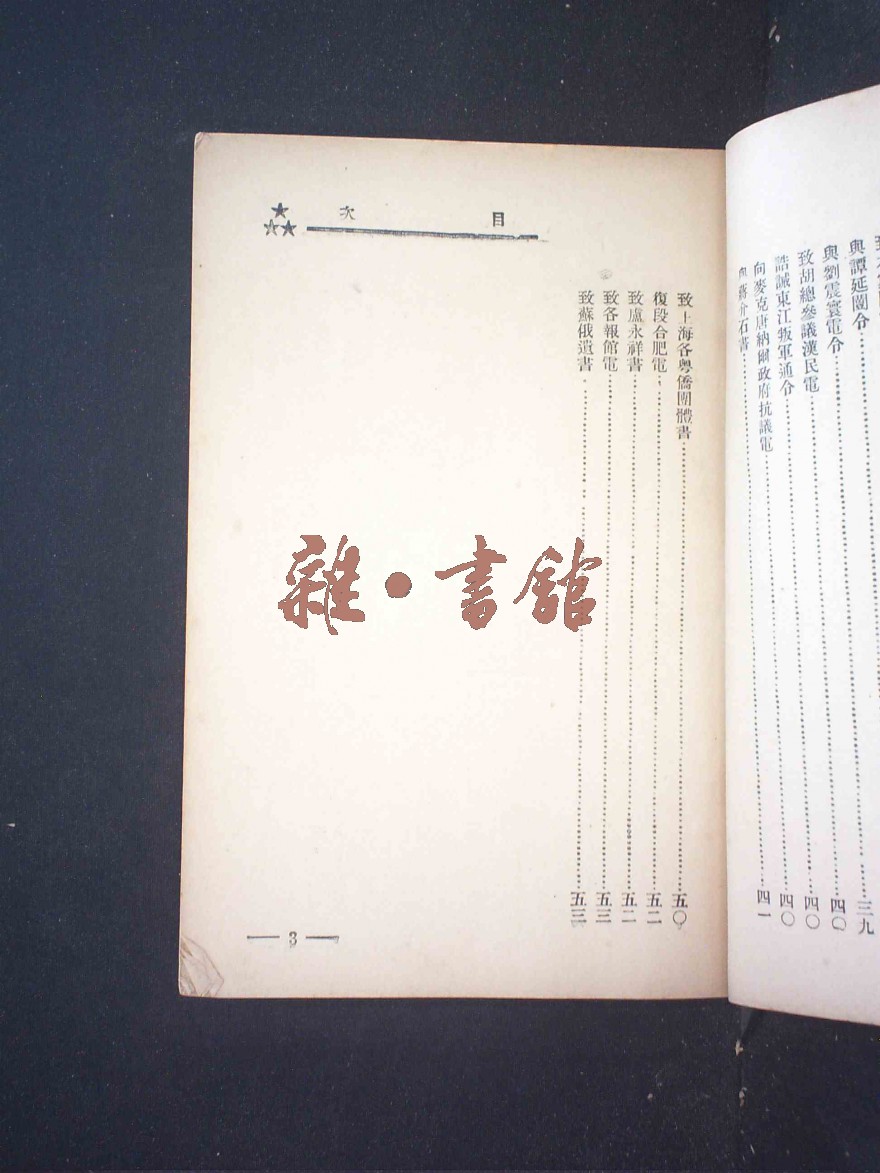 與譚延闓令……三九
與劉震寰電令……四〇
致胡總參議漢民電……四〇
誥誡東江叛軍通令……四〇
向麥克唐納爾政府抗議電……四一
與蔣介石書
目次
致上海各粵僑團體書……五〇
復段合肥電……五二
致盧永祥書……五二
致各報館電……五三
致蘇俄遺書……五三
3
雜·書館